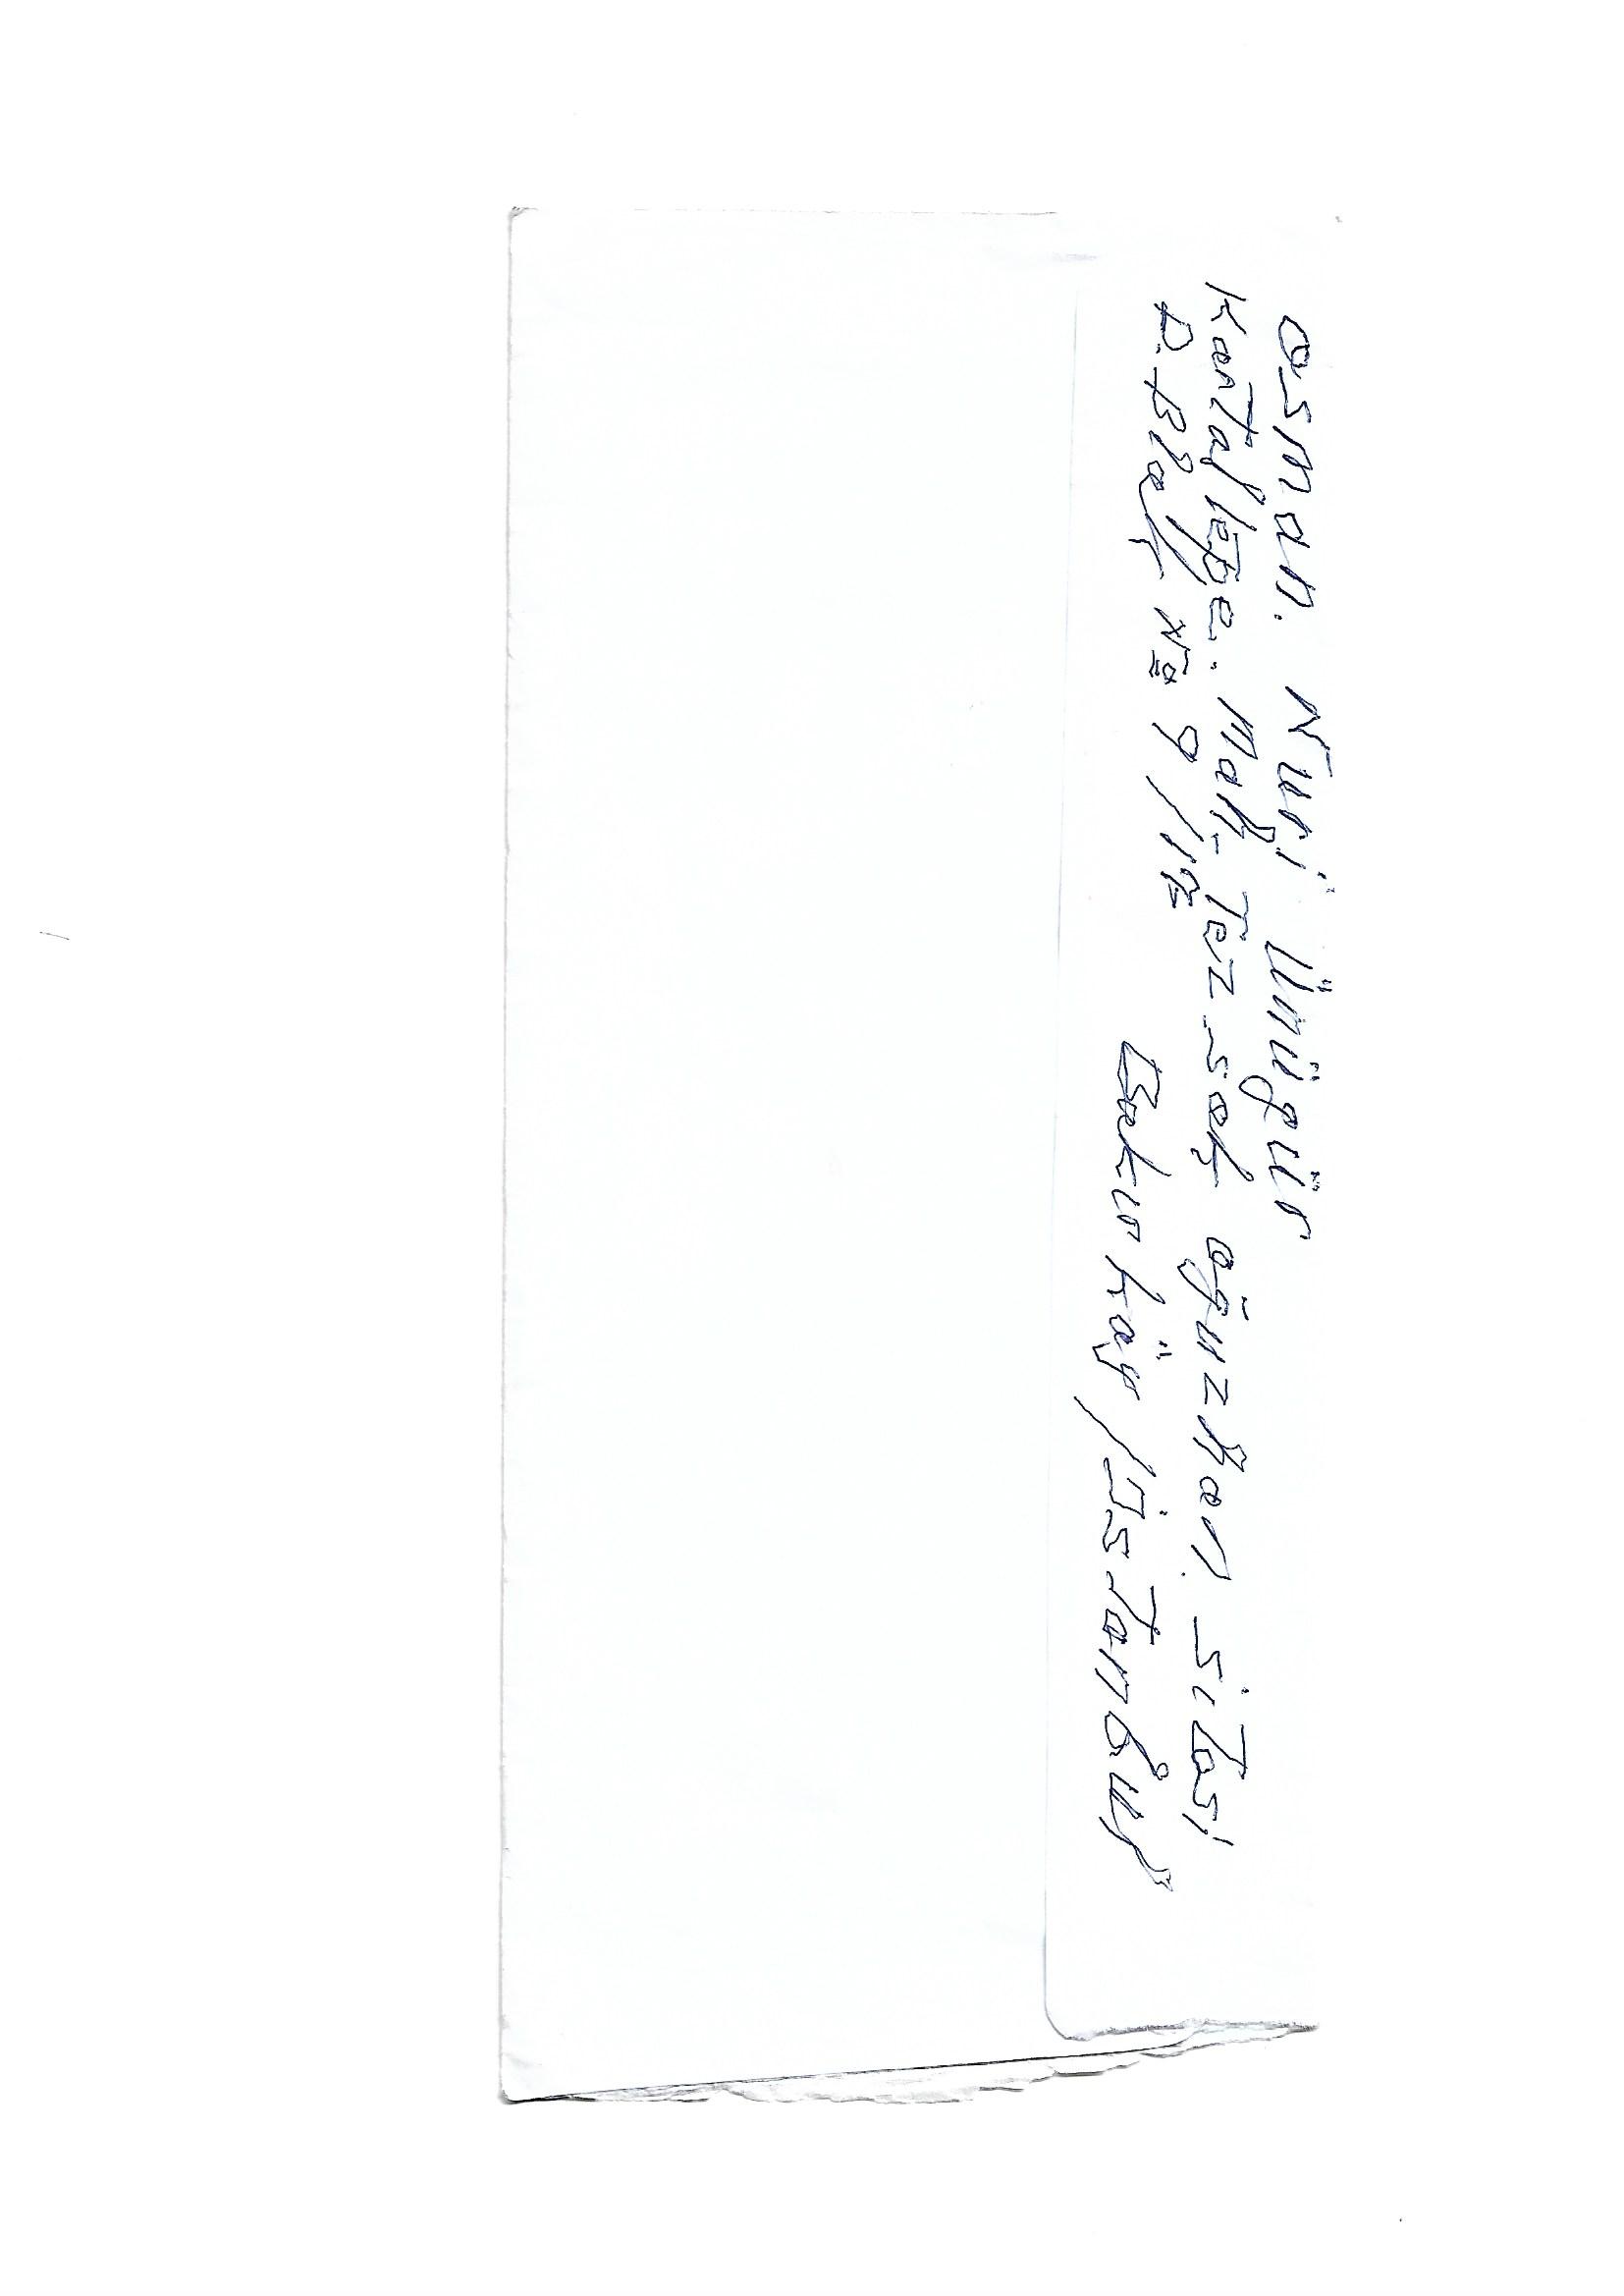 Osman. Nuri Ünügür
Kartaltepe. Mah. Tez sok oğuzhan. sitesi
D. Blok No 9 / 12
Bakırköy / İstanbul